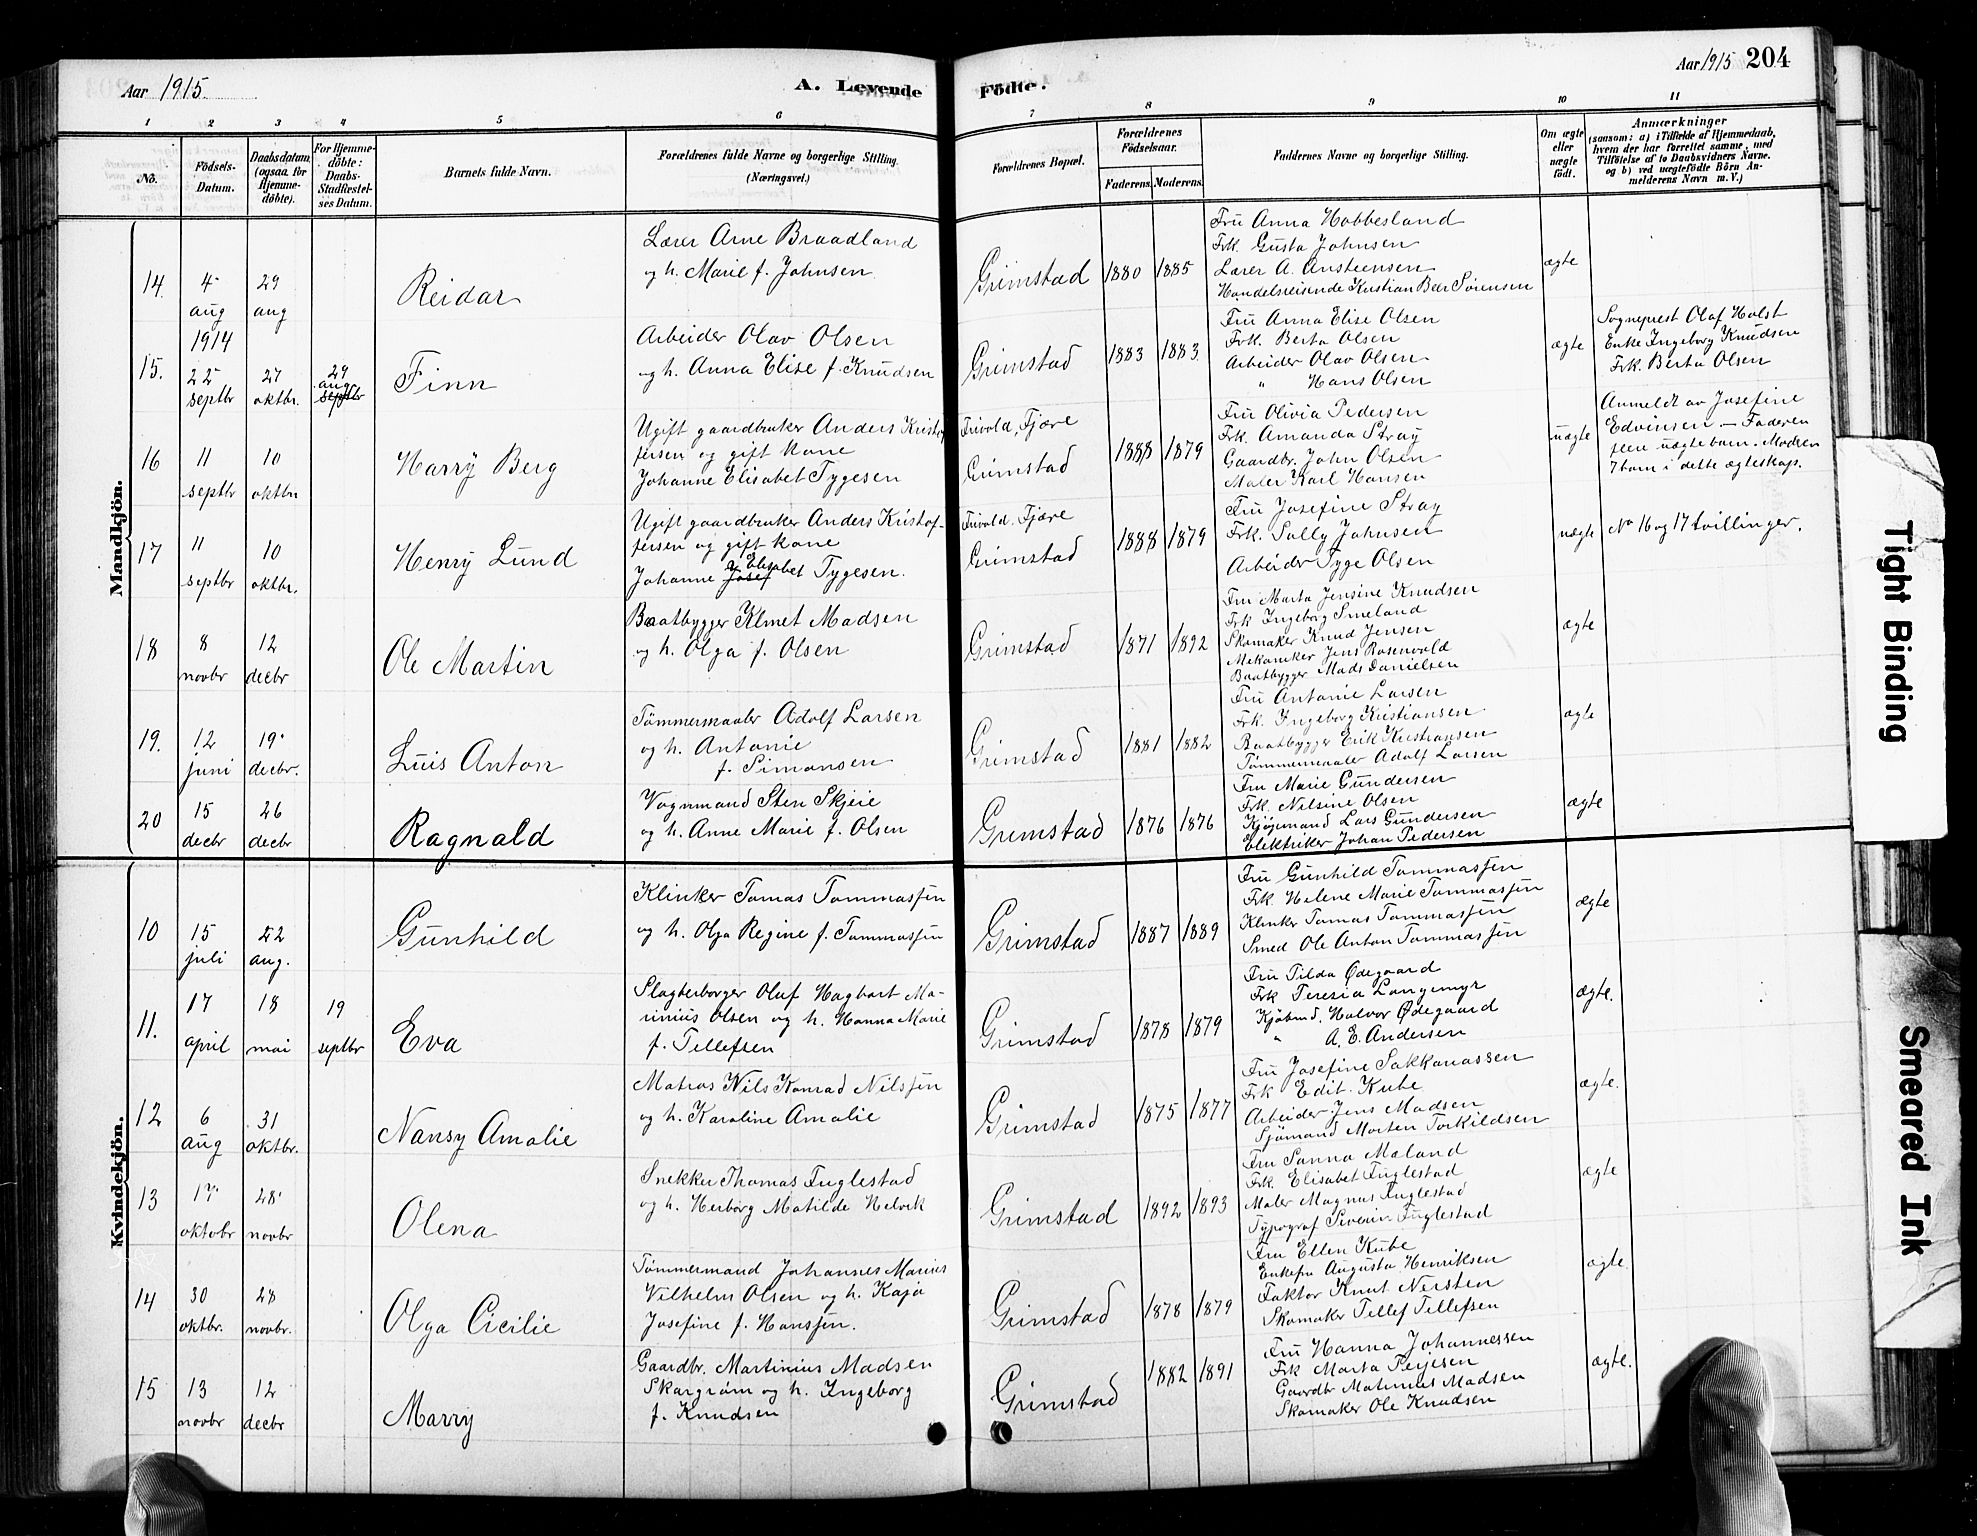 Aar 1915. A. Levende
Födte. Aar 1915 204
1 2 3 4 5 6
7 8 9 10 11
No.
Födsels-Datum.
Daabsdatum (ogsaa for Hjemme-døbte).
For Hjemme-døbte: Daabs-Stadfæstel-ses Datum.
Barnets fulde Navn.
Forældrenes fulde Navne og borgerlige Stilling. (Næringsvei.)
Forældrenes Bopæl.
Forældrenes Födselsaar.
Faderens. Moderens.
Faddernes Navne og borgerlige Stilling.
Om ægte eller uægte födt.
Anmærkninger
(saasom: a) i Tilfælde af Hjemmedaab, hvem der har forrettet samme, med Tilföielse af to Daabsvidners Navne. og b) ved uægtefödte Börn An-melderens Navn m. V.)
Mandkjön.
14. 4 aug 29 aug Reidar
Lærer Arne Braadland
og h. Marie f. Johnsen
Grimstad 1880 1885
Fru Anna Hobbesland
Frk. Gusta Johnsen
Lærer A. Ansteensen
Handelsreisende Kristian Bær Sørensen
ægte
15. 1914 22 septbr 27 oktbr. 29 aug septbr Finn
Arbeider Olav Olsen
og h. Anna Elise f. Knudsen
Grimstad 1883 1883
Fru Anna Elise Olsen
Frk. Berta Olsen
Arbeider Olav Olsen
" Hans Olsen
ægte
Sogneprest Olaf Holst
Enke Ingeborg Knudsen
Frk. Berta Olsen
16 11 septbr 10 oktbr Harry Berg
Ugift gaardbruker Anders Kristof
fersen og gift kone
Johanne Elisabet Tygesen
Frivold, Fjære
Grimstad 1888 1879
Fru Olivia Pedersen
Frk. Amanda Stray
Gaardbr. John Olsen
Maler Karl Hansen
uægte
Anmeldt av Josefine
Edvinsen – Faderen
uægte barn. Modren
7 barn i dette ægteskap.
17 11 septbr 10 oktbr. Henry Lund
Ugift gaardbruker Anders Kristof-
fersen og gift kone
Johanne Josef Elisabet Tygesen.
Frivold. Fjære
Grimstad 1888 1879
Fru Josefine Stray
Frk. Sally Johnsen
Arbeider Tyge Olsen
uægte
No 16 og 17 tvillinger.
18 8 novbr 12 decbr Ole Martin
Baatbygger Klmet Madsen
og h. Olga f. Olsen
Grimstad 1871 1892
Fru Marta Jensine Knudsen
Frk Ingeborg Smeland
Skomaker Knud Jensen
Mekaniker Jens Rosenvold
Baatbygger Mads Danielsen
ægte
19. 12 juni 19 decbr. Luis Anton
Tømmermaaler Adolf Larsen
og h. Antonie
f. Simonsen
Grimstad 1881 1882
Fru Antonie Larsen
Frk. Ingeborg Kristiansen
Baatbygger Erik Kristiansen
Tømmermaaler Adolf Larsen
ægte
20 15 decbr 26 decbr Ragnald
Vognmand Sten Skjeie
og h. Anne Marie f. Olsen
Grimstad 1876 1876
Fru Marie Gundersen
Frk. Nilsine Olsen
Kjøpmand Lars Gundersen
Elektriker Johan Pedersen
ægte
Kvindekjön.
10 15 juli 22 aug. Gunhild
Klinker Tomas Tommassen
og h. Olga Regine f. Tommassen
Grimstad 1887 1889
Fru Gunhild Tommassen
Frk. Helene Marie Tommassen
Klinker Tomas Tommassen
Smed Ole Anton Tommassen
ægte
11. 17 april 18 mai 19 septbr Eva
Slagterborger Oluf Hagbart Ma-
rinius Olsen og h. Hanna Marie
f. Tellefsen
Grimstad 1878 1879
Fru Tilda Ødegaard
Frk Teresia Langemyr
Kjøbmd. Halvor Ødegaard
" A. E. Andersen
ægte.
12 6 aug 31 oktbr. Nansy Amalie
Matros Nils Konrad Nilssen
og h. Karoline Amalie
Grimstad 1875 1877
Fru Josefine Sakkariassen
Frk Edit. Kube
Arbeider Jens Madsen
Sjømand Morten Torkildsen
ægte.
13 17 oktobr 28 novbr Olena
Snekker Thomas Fuglestad
og h. Herborg Matilde Helvik
Grimstad 1892 1893
Fru Sanna Maland
Frk. Elisabet Fuglestad
Maler Magnus Fuglestad
Typograf Severin Fuglestad
ægte
14 30 oktbr. 28 novbr. Olga Cicilie
Tømmermand Johannes Marius
Vilhelm Olsen og h. Kaja
Josefine f. Hanssen.
Grimstad 1878 1879
Fru Ellen Kube
Enkefru Augusta Henriksen
Faktor Knut Nersten
Skomaker Tellef Tellefsen
ægte.
15 13 novbr 12 decbr Marry
Gaardbr. Martinius Madsen
Skargrøm og h. Ingeborg
f. Knudsen
Grimstad 1882 1891
Fru Hanna Johannessen
Frk Marta Terjesen
Gaardbr Matinius Madsen
Skomaker Ole Knudsen
ægte.
Tight Binding
Smeared Ink